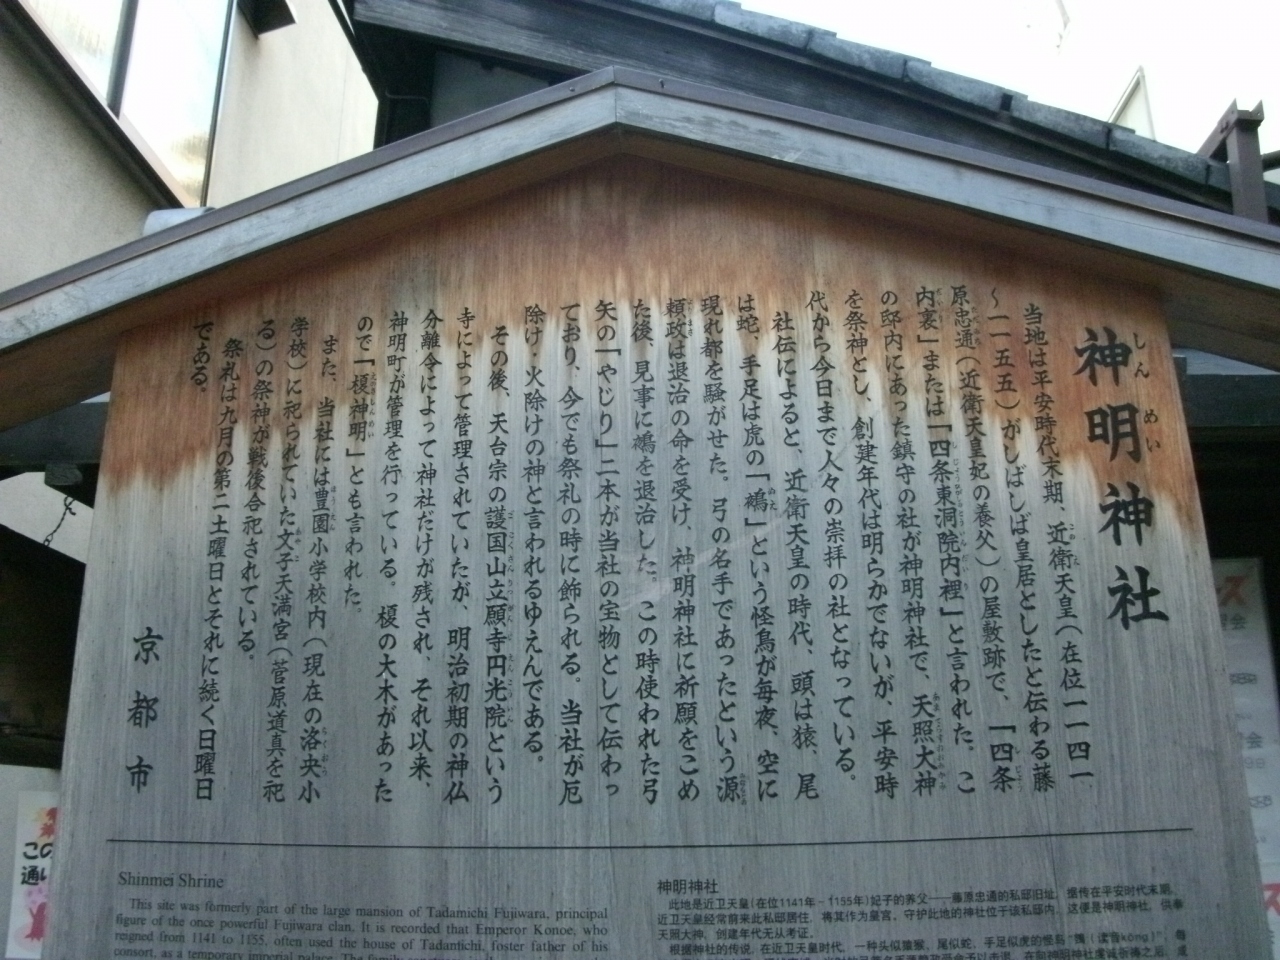 神明神社
しんめい
当地は平安時代末期、近衛天皇(在位一一四一
～一一五五)がしばしば皇居としたと伝わる藤
原忠通(近衛天皇妃の養父)の屋敷跡で、「四条
内裏」または「四条東洞院内裡」と言われた。こ
の邸内にあった鎮守の社が神明神社で、天照大神
を祭神とし、創建年代は明らかでないが、平安時
代から今日まで人々の崇拝の社となっている。
社伝によると、近衛天皇の時代、頭は猿、尾
は蛇、手足は虎の「鵺」という怪鳥が毎夜、空に
現れ都を騒がせた。弓の名手であったという源
頼政は退治の命を受け、神明神社に祈願をこめ
た後、見事に鵺を退治した。この時使われた弓
矢の「やじり」二本が当社の宝物として伝わっ
ており、今でも祭礼の時に飾られる。当社が厄
除け・火除けの神と言われるゆえんである。
その後、天台宗の護国山立願寺円光院という
寺によって管理されていたが、明治初期の神仏
分離令によって神社だけが残され、それ以来、
神明町が管理を行っている。榎の大木があった
ので「榎神明」とも言われた。
また、当社には豊園小学校内(現在の洛央小
学校)に祀られていた文子天満宮(菅原道真を祀
る)の祭神が戦後合祀されている。
祭礼は九月の第二土曜日とそれに続く日曜日
である。
京都市
Shinmei Shrine
This site was formerly part of the large mansion of Tadamichi Fujiwara, principal
figure of the once powerful Fujiwara clan. It is recorded that Emperor Konoe, who
reigned from 1141 to 1155, often used the house of Tadamichi, foster father of his
consort, as a temporary imperial palace. The family
神明神社
此地是近卫天皇(在位1141年－1155年)妃子的养父——藤原忠通的私邸旧址。据传在平安时代末期,
近卫天皇经常前来此私邸居住,将其作为皇宫。守护此地的神社位于该私邸内,这便是神明神社,供奉
天照大神,创建年代无从考证。
根据神社的传说,在近卫天皇时代,一种头似猿猴、尾似蛇、手足似虎的怪鸟
この
通い